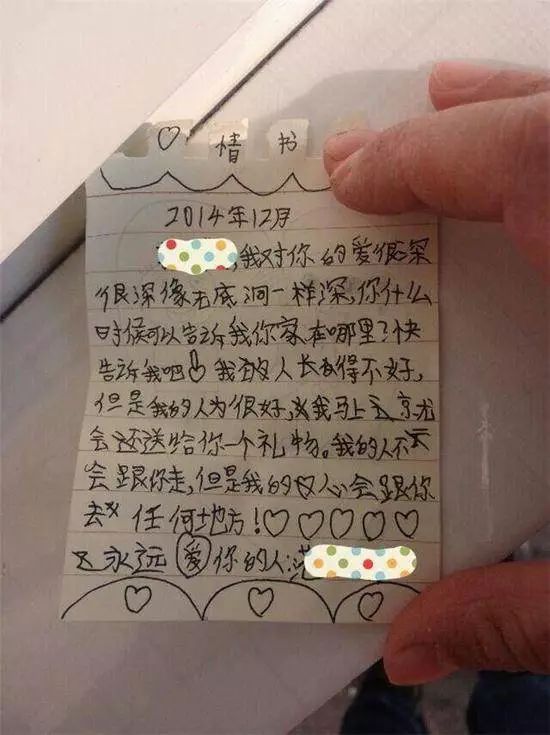 ♡ 情 书
2014年12月
,我对你的爱很深
很深像无底洞一样深,你什么
时候可以告诉我你家在哪里?快
告诉我吧 我的人长得不好,
但是我的人为很好,我马上
会还送给你一个礼物。我的人不
会跟你走,但是我的心会跟你
去 任何地方!♡♡♡♡♡
永远爱你的人: